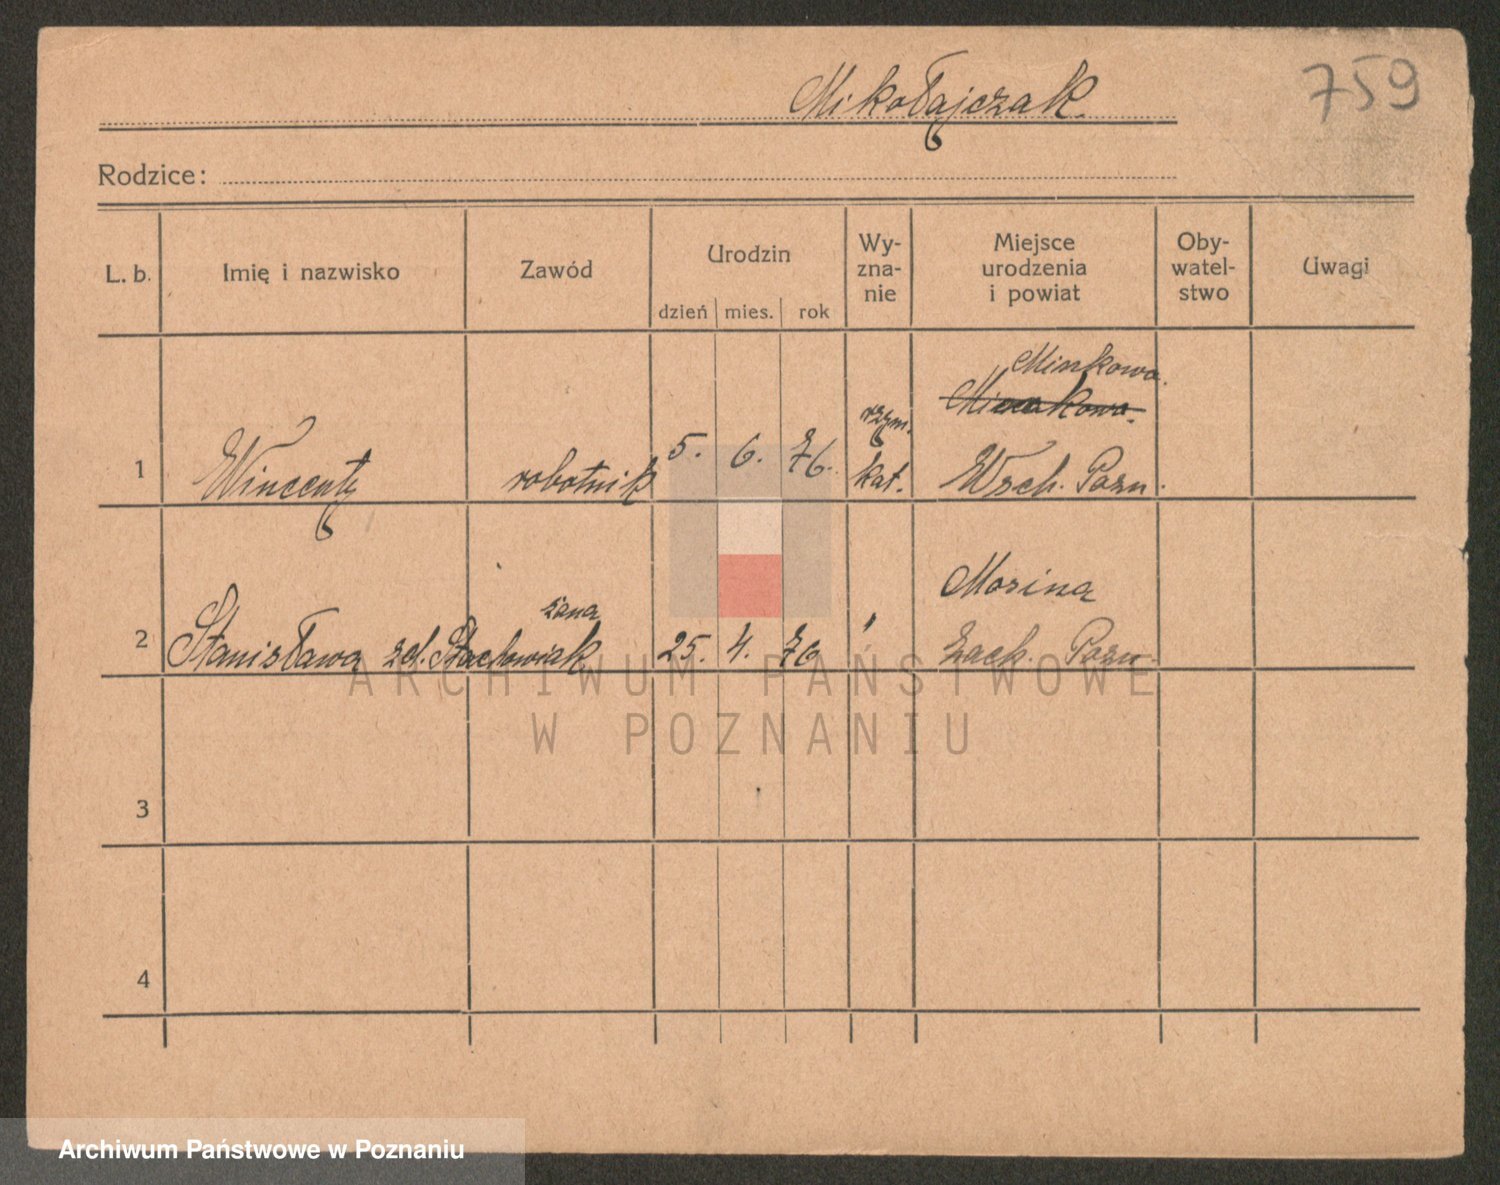 Mikołajczak
759
Rodzice:
L. b.
Imię i nazwisko
Zawód
Urodzin
dzień mies. rok
Wy-
zna-
nie
Miejsce
urodzenia
i powiat
Oby-
watel-
stwo
Uwagi
Minkowo.
1 Wincenty robotnik 5. 6. 76. rzym.
kat. Wsch. Pozn.
żona
Mosina
2 Stanisława zd. Stachowiak 25. 4. 76 " Zach. Pozn.
3
4
ARCHIWUM PAŃSTWOWE
W POZNANIU
Archiwum Państwowe w Poznaniu